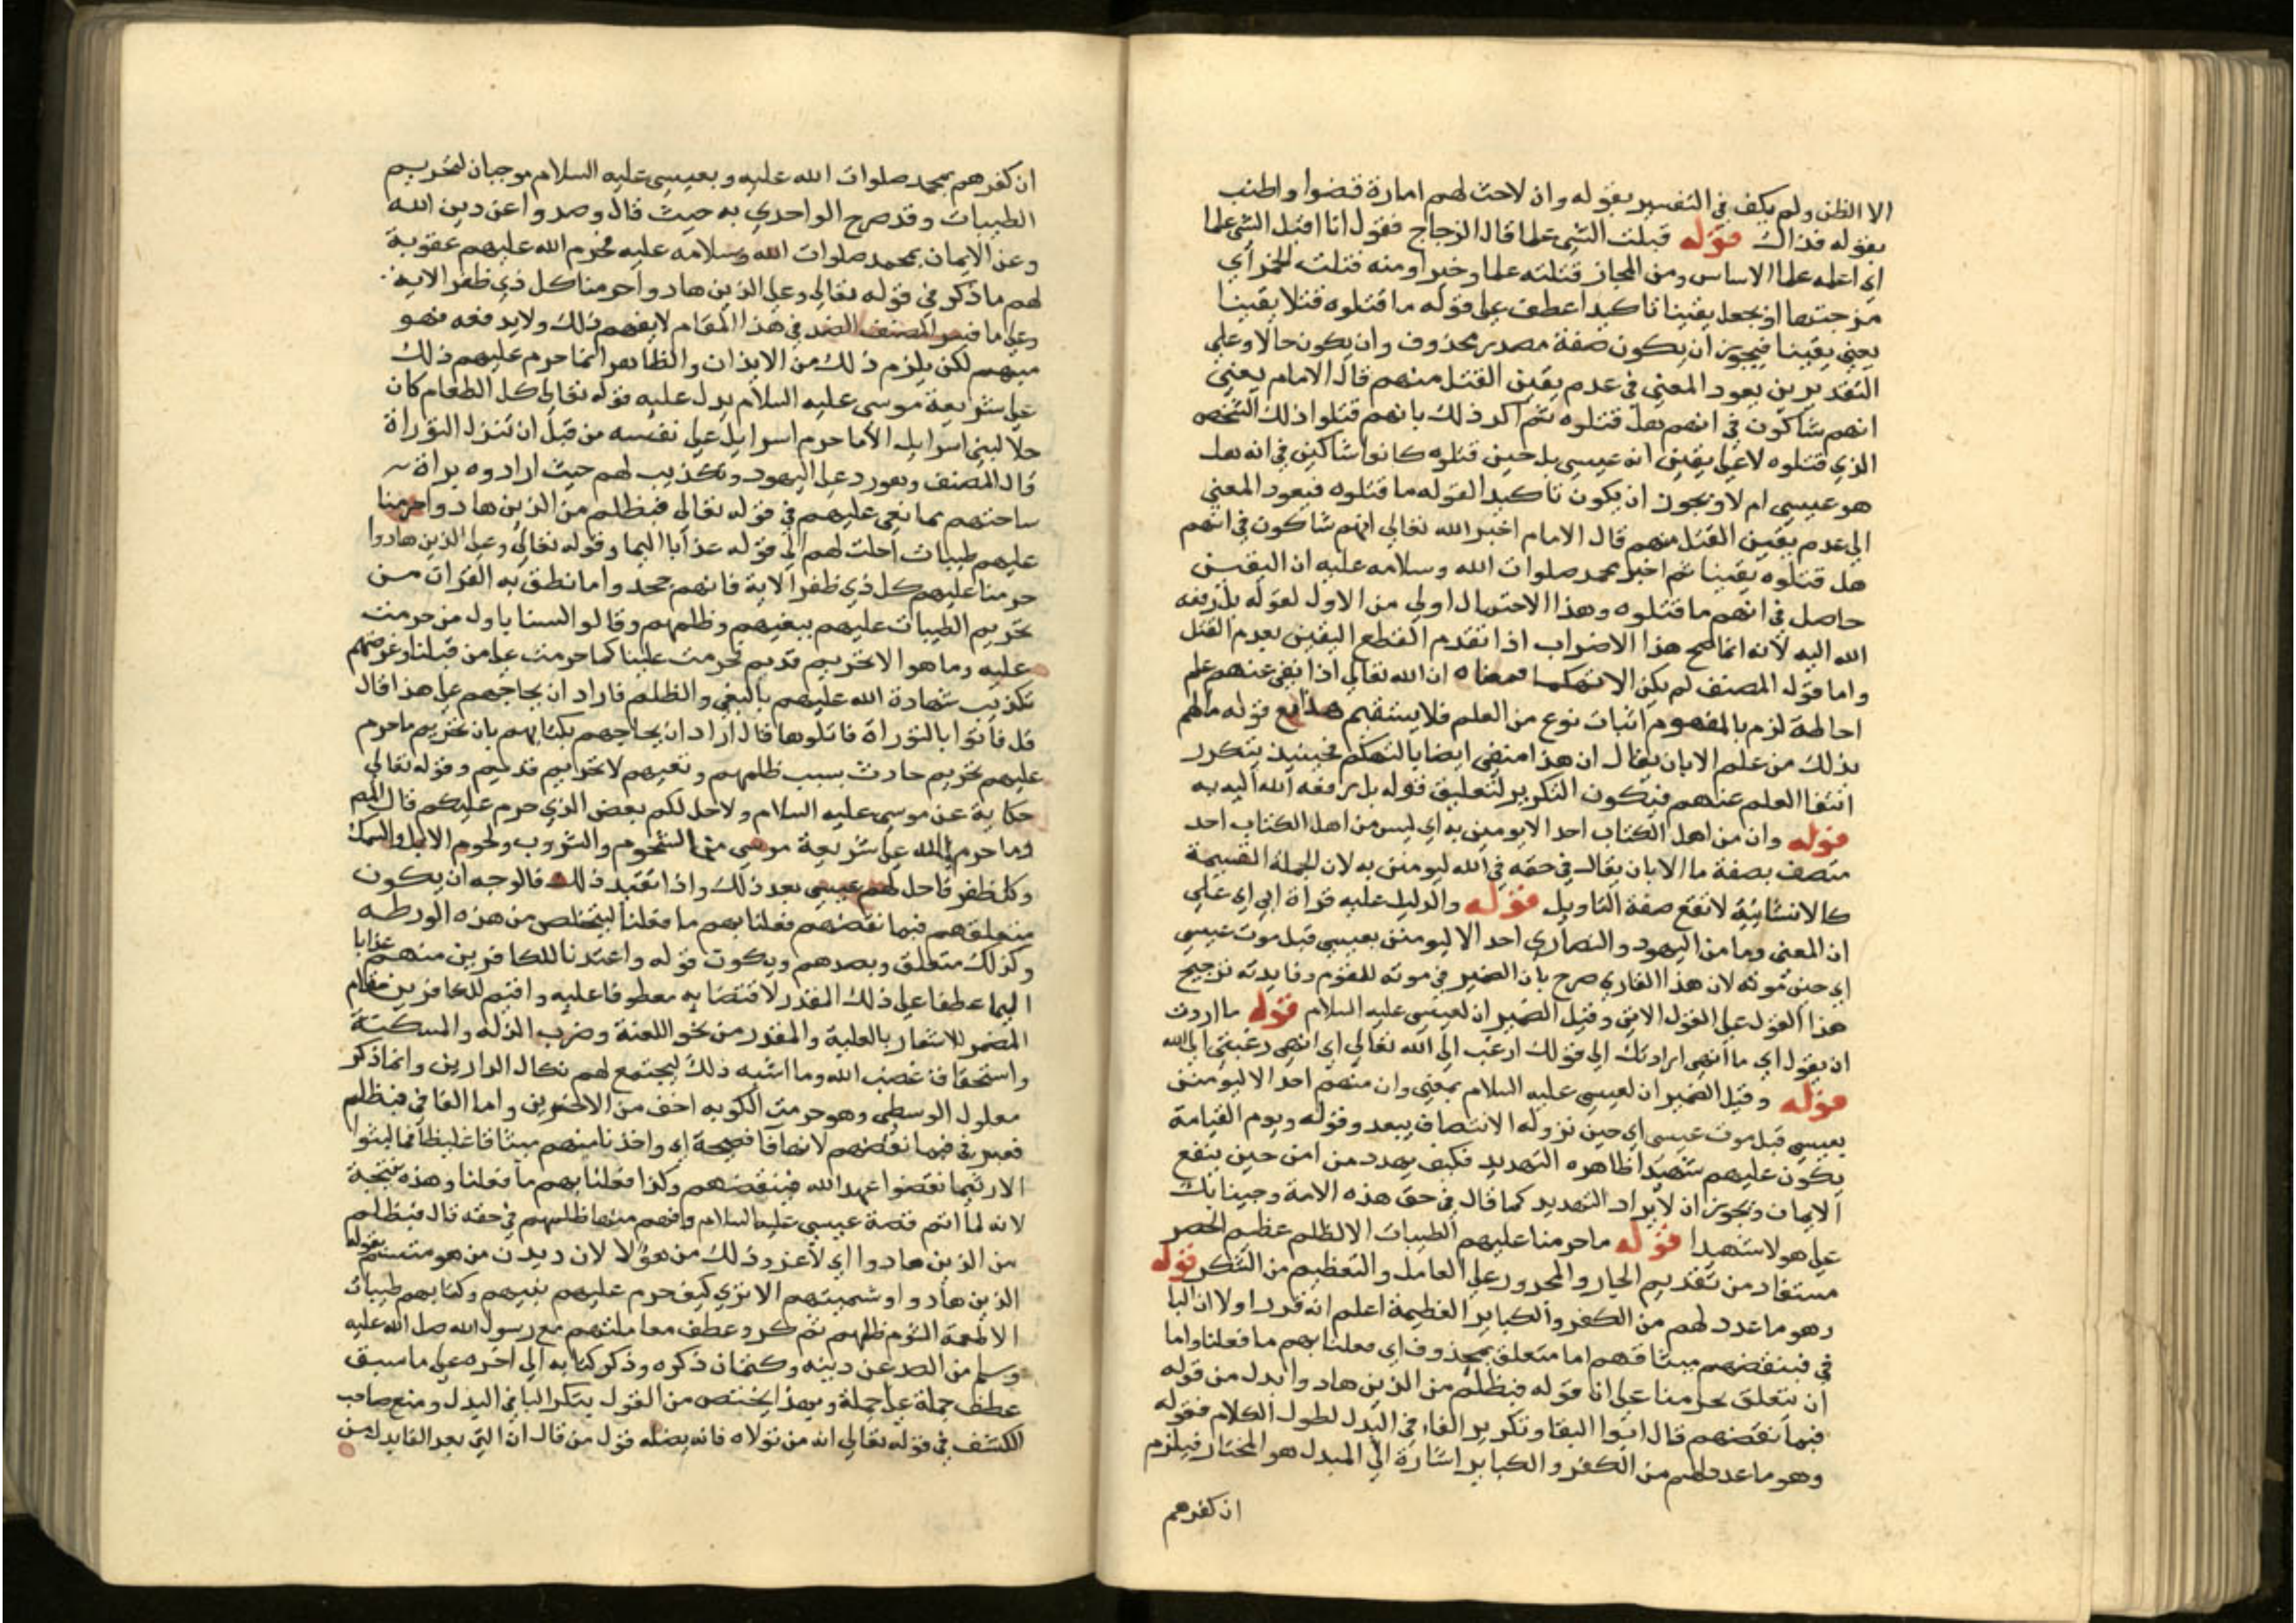 الا الظن ولم يكف في التفسير بقوله وان لاحت لهم امارة قضوا واطنب
بقوله فذاك قوله قبلت الشي علما قال الزجاج فقول انا اقبل الشي علما
اي اعلمه علما الاساس ومن المجاز قتلته علما وخبرا ومنه قتلت الخمر اي
مزجتها او يجعل يقينا تاكيدا عطف على قوله ما قتلوه قتلا يقينا
يعني يقينا فيجوز ان يكون صفة مصدر محذوف وان يكون حالا وعلى
التقديرين يعود المعنى في عدم يقين القتل منهم قال الامام يعني
انهم شاكون في انهم هل قتلوه ثم اكد ذلك بانهم قتلوا ذلك الشخص
الذي قتلوه لا على يقين انه عيسى بل حين قتلوه كانوا شاكين في انه هل
هو عيسى ام لا ويجوز ان يكون تاكيدا لقوله ما قتلوه فيعود المعنى
الى عدم يقين القتل منهم قال الامام اخبر الله تعالى انهم شاكون في انهم
هل قتلوه يقينا ثم اخبر محمد صلوات الله وسلامه عليه ان اليقين
حاصل في انهم ما قتلوه وهذا الاحتمال اولى من الاول لقوله بل رفعه
الله اليه لانه انما صح هذا الاضراب اذا تقدم القطع اليقين بعدم القتل
واما قوله المصنف لم يكن الا تهكما فمعناه ان الله تعالى اذا نفى عنهم علم
احاطة لزم بالمفهوم اثبات نوع من العلم فلا يستقيم هذا مع قوله ما لهم
بذلك من علم الا بان يقال ان هذا منفي ايضا بالتهكم فحينيذ يتكرر
انتفا العلم عنهم فيكون التكرير لتعليق قوله بل رفعه الله اليه به
قوله وان من اهل الكتاب احد الا يومنن به اي ليس من اهل الكتاب احد
متصف بصفة ما الا بان يقال في حقه في الله ليومنن به لان الجملة القسيمة
كالانشائية لا تقع صفة التاويل قوله والدليل عليه قراة ابي اي على
ان المعنى وما من اليهود والنصارى احد الا ليومنن بعيسى قبل موت عيسى
اي حين موته لان هذا القاري صرح بان الضمير في موته للقوم وفايدته ترجيح
هذا القول على القول الاتي وقيل الضمير ان لعيسى عليه السلام قوله ما اردت
ان يقول اي ما انهى ارادتك الى قولك ارغب الى الله تعالى اي انهي رغبتي الى الله
قوله وقيل الضمير ان لعيسى عليه السلام بمعنى وان منهم احد الا ليومنن
بعيسى قبل موت عيسى اي حين نزوله الانتصاف يبعد وقوله ويوم القيامة
يكون عليهم شهيدا ظاهره التهديد فكيف يهدد من امن حين ينفع
الايمان ويجوز ان لا يراد التهديد كما قال في حق هذه الامة وجينا بك
على هولا شهيدا قوله ما حرمنا عليهم الطيبات الا لظلم عظيم الحصر
مستفاد من تقديم الجار والمجرور على العامل والتعظيم من التنكر قوله
وهو ما عدد لهم من الكفر والكباير العظيمة اعلم انه قدر اولا ان البا
في فبنقضهم ميثاقهم اما متعلق بمحذوف اي فعلنا بهم ما فعلنا واما
ان يتعلق بحرمنا على ان قوله فبظلم من الذين هادوا بدل من قوله
فبما نقضهم قال ابوا البقا وتكرير الفاء في البدل لطول الكلام فقوله
وهو ما عدد لهم من الكفر والكباير اشارة الى المبدل هو المختار فيلزم
ان كفرهم
ان كفرهم بمحمد صلوات الله عليه وبعيسى عليه السلام موجبان لتحريم
الطيبات وقد صرح الواحدي به حيث قال وصدوا عن دين الله
وعن الايمان بمحمد صلوات الله وسلامه عليه فحرم الله عليهم عقوبة
لهم ما ذكر في قوله تعالى وعلى الذين هادوا حرمنا كل ذي ظفر الاية
وعلى ما المصنف في هذا المقام لا يفهم ذلك ولا يدفعه فهو
مبهم لكن يلزم ذلك من الايذان والظاهر انما حرم عليهم ذلك
على شريعة موسى عليه السلام يدل عليه قوله تعالى كل الطعام كان
حلا لبني اسرايل الا ما حرم اسرايل على نفسه من قبل ان تنزل التوراة
قال المصنف وهو رد على اليهود وتكذيب لهم حيث ارادوه براة
ساحتهم بما نعى عليهم في قوله تعالى فبظلم من الذين هادوا حرمنا
عليهم طيبات احلت لهم الى قوله عذابا اليما وقوله تعالى وعلى الذين هادوا
حرمنا عليهم كل ذي ظفر الاية فانهم جحدوا ما نطق به القران من
تحريم الطيبات عليهم ببغيهم وظلمهم وقالو السنا باول من حرمت
عليه وما هو الا تحريم قديم فحرمت علينا كما حرمت على من قبلنا وغرضهم
تكذيب شهادة الله عليهم بالبغي والظلم فاراد ان يحاجهم على هذا قال
قل فاتوا بالتوراة فاتلوها قال اراد ان يحاجهم بكتابهم بان تحريم ما حرم
عليهم تحريم حادث بسبب ظلمهم وبغيهم لا تحريم قديم وقوله تعالى
حكاية عن موسى عليه السلام ولاحل لكم بعض الذي حرم عليكم قال المص
وما حرم الله على شريعة موسى من الشحوم والثروب ولحوم الابل والسمك
وكل ظفر فاحل لهم عيسى بعد ذلك واذا تقيد ذلك فالوجه ان يكون
متعلقهم فبما نقضهم فعلنا بهم ما فعلنا ليتخلص من هذه الورطه
وكذلك متعلق وبصدهم ويكون قوله واعتدنا للكافرين منهم عذابا
اليما عطفا على ذلك المقدر لاقتضايه معطوفا عليه واقيم للكافرين مقام
المضمر للاشعار بالعلية والمقدر من نحو اللعنة وضرب الذله والمسكنة
واستحقاق غضب الله وما اشبه ذلك ليجتمع لهم نكال الدارين وانما ذكر
معلول الوسطى وهو حرمت الكونه اخف من الاخيرين واما الفا في فبظلم
فعبر في فبما نقضهم لانها فا فصيحة اي واخذنا منهم ميثاقا غليظا فما لبثوا
الا ريثما نقضوا عهد الله فبنقضهم وكذا فعلنا بهم ما فعلنا وهذه نتيجة
لانه لما اتم قصة عيسى عليه السلام وافهم منها ظلمهم في حقه قال فبظلم
من الذين هادوا اي لا عزو ذلك من هؤلا لان ديدن من هو متسم بقوله
الذين هادوا وشميتهم الا ترى كيف حرم عليهم بغيهم وكتابهم طيبات
الاطعمة التوم ظلمهم ثم كر وعطف معاملتهم مع رسول الله صلى الله عليه
وسلم من الصد عن دينه وكتمان ذكره وذكر كتابه الى اخره على ما سبق
عطف جملة على جملة وبهذا يختص من القول بتكر البا في البدل ومنع صاحب
الكشف في قوله تعالى انه من تولاه فانه يضله قول من قال ان التي بعد الفا بدل من